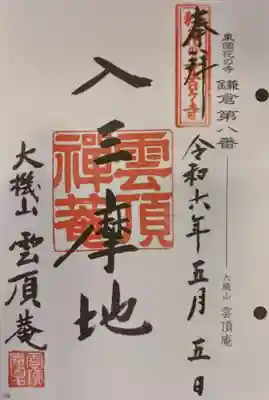 東國花の寺 鎌倉第八番 大機山 雲頂庵
奉拝 令和六年五月五日
入三摩地
雲頂禅菴
大機山 雲頂菴